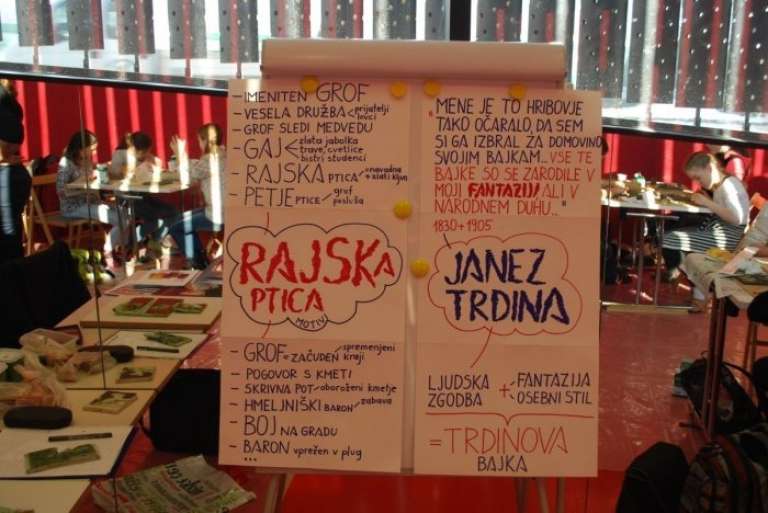 - IMENITEN GROF
- VESELA DRUŽBA prijatelji
lovci
- GROF SLEDI MEDVEDU
- GAJ zlata jabolka
trave, cvetlice
bistri studenci
- RAJSKA PTICA navadna
zlati kljun
- PETJE PTICE grof
posluša
RAJSKA
PTICA
MOTIV
- GROF ZAČUDEN spremenjeni
kraji
- POGOVOR S KMETI
- SKRIVNA POT oboroženi kmetje
- HMELJNIŠKI BARON zabava
- BOJ NA GRADU
- BARON vprežen v plug
...
"MENE JE TO HRIBOVJE
TAKO OČARALO, DA SEM
SI GA IZBRAL ZA DOMOVINO
SVOJIM BAJKAM... VSE TE
BAJKE SO SE ZARODILE V
MOJI FANTAZIJI ALI V
NARODNEM DUHU.."
1830 + 1905
JANEZ
TRDINA
LJUDSKA
ZGODBA + FANTAZIJA
OSEBNI STIL
= TRDINOVA
BAJKA